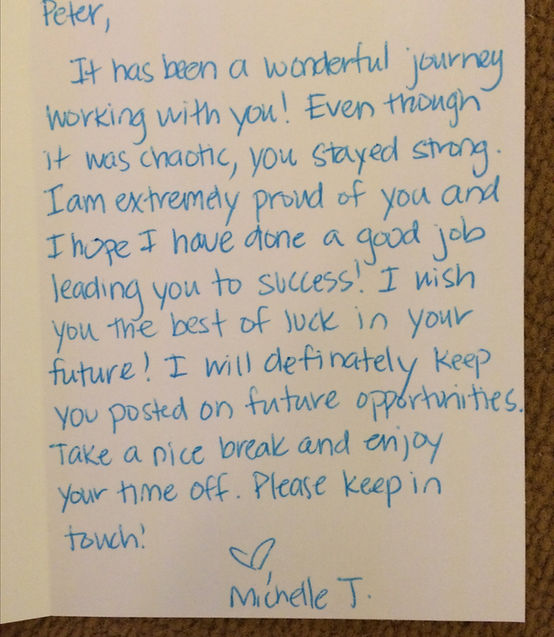 Peter,
It has been a wonderful journey
working with you! Even though
it was chaotic, you stayed strong.
I am extremely proud of you and
I hope I have done a good job
leading you to success! I wish
you the best of luck in your
future! I will definately keep
you posted on future opportunities.
Take a nice break and enjoy
your time off. Please keep in
touch!
♡,
Michelle T.